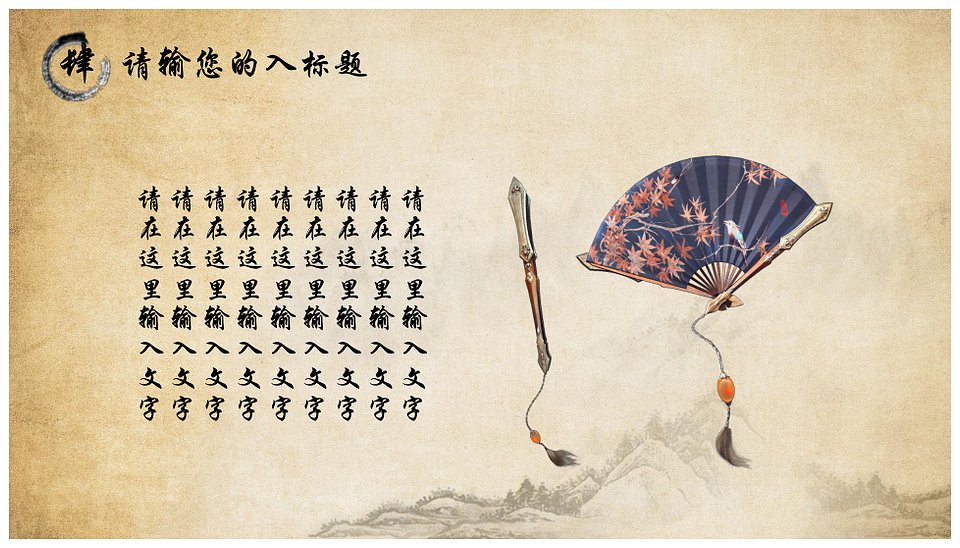 肆 请输您的入标题
请在这里输入文字
请在这里输入文字
请在这里输入文字
请在这里输入文字
请在这里输入文字
请在这里输入文字
请在这里输入文字
请在这里输入文字
请在这里输入文字